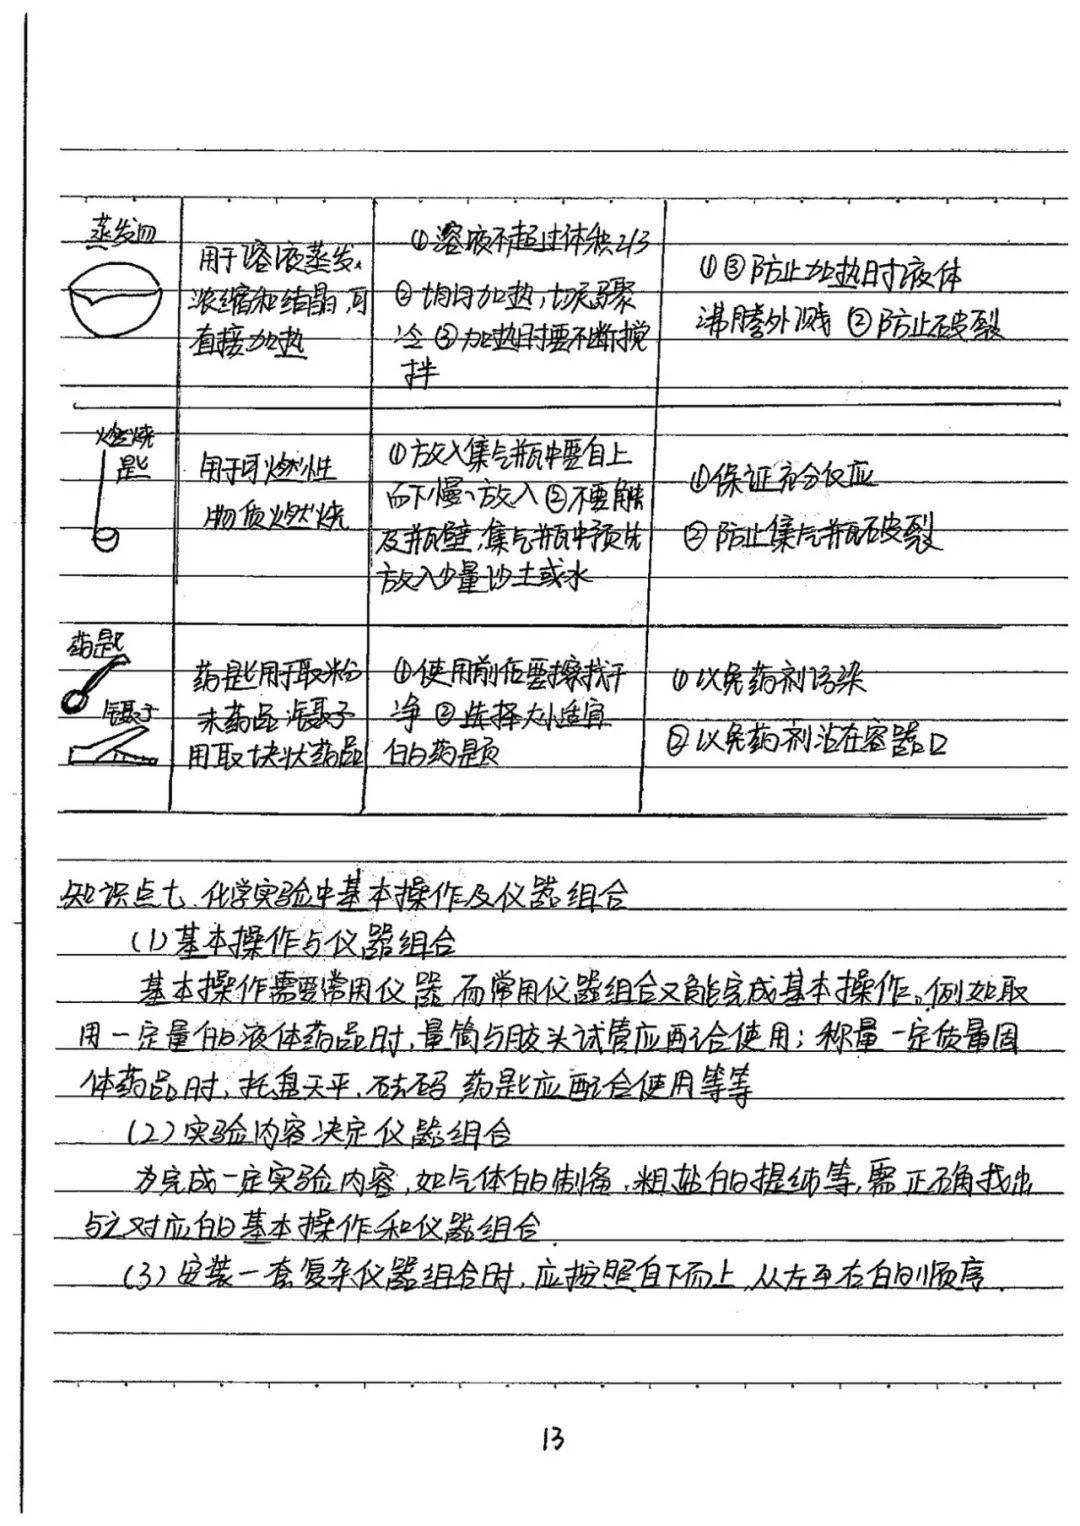 蒸发皿
用于溶液蒸发、
浓缩和结晶,可
直接加热
①溶液不超过体积2/3
②均匀加热,切忌骤
冷 ③加热时要不断搅
拌
①③防止加热时液体
沸腾外溅 ②防止破裂
燃烧
匙
用于可燃性
物质燃烧
①放入集气瓶中要自上
而下慢慢放入②不要触
及瓶壁,集气瓶中预先
放入少量沙土或水
①保证充分反应
②防止集气瓶破裂
药匙
镊子
药匙用于取粉
末药品,镊子
用取块状药品
①使用前后要擦拭干
净 ②选择大小适宜
的药匙
①以免药剂污染
②以免药剂沾在容器口
知识点七、化学实验中基本操作及仪器组合
(1)基本操作与仪器组合
基本操作需要常用仪器,而常用仪器组合又能完成基本操作。例如取
用一定量的液体药品时,量筒与胶头试管应配合使用;称量一定质量固
体药品时,托盘天平、砝码、药匙应配合使用等等
(2)实验内容决定仪器组合
为完成一定实验内容,如气体的制备、粗盐的提纯等,需正确找出
与之对应的基本操作和仪器组合
(3)安装一套复杂仪器组合时,应按照自下而上,从左至右的顺序.
13